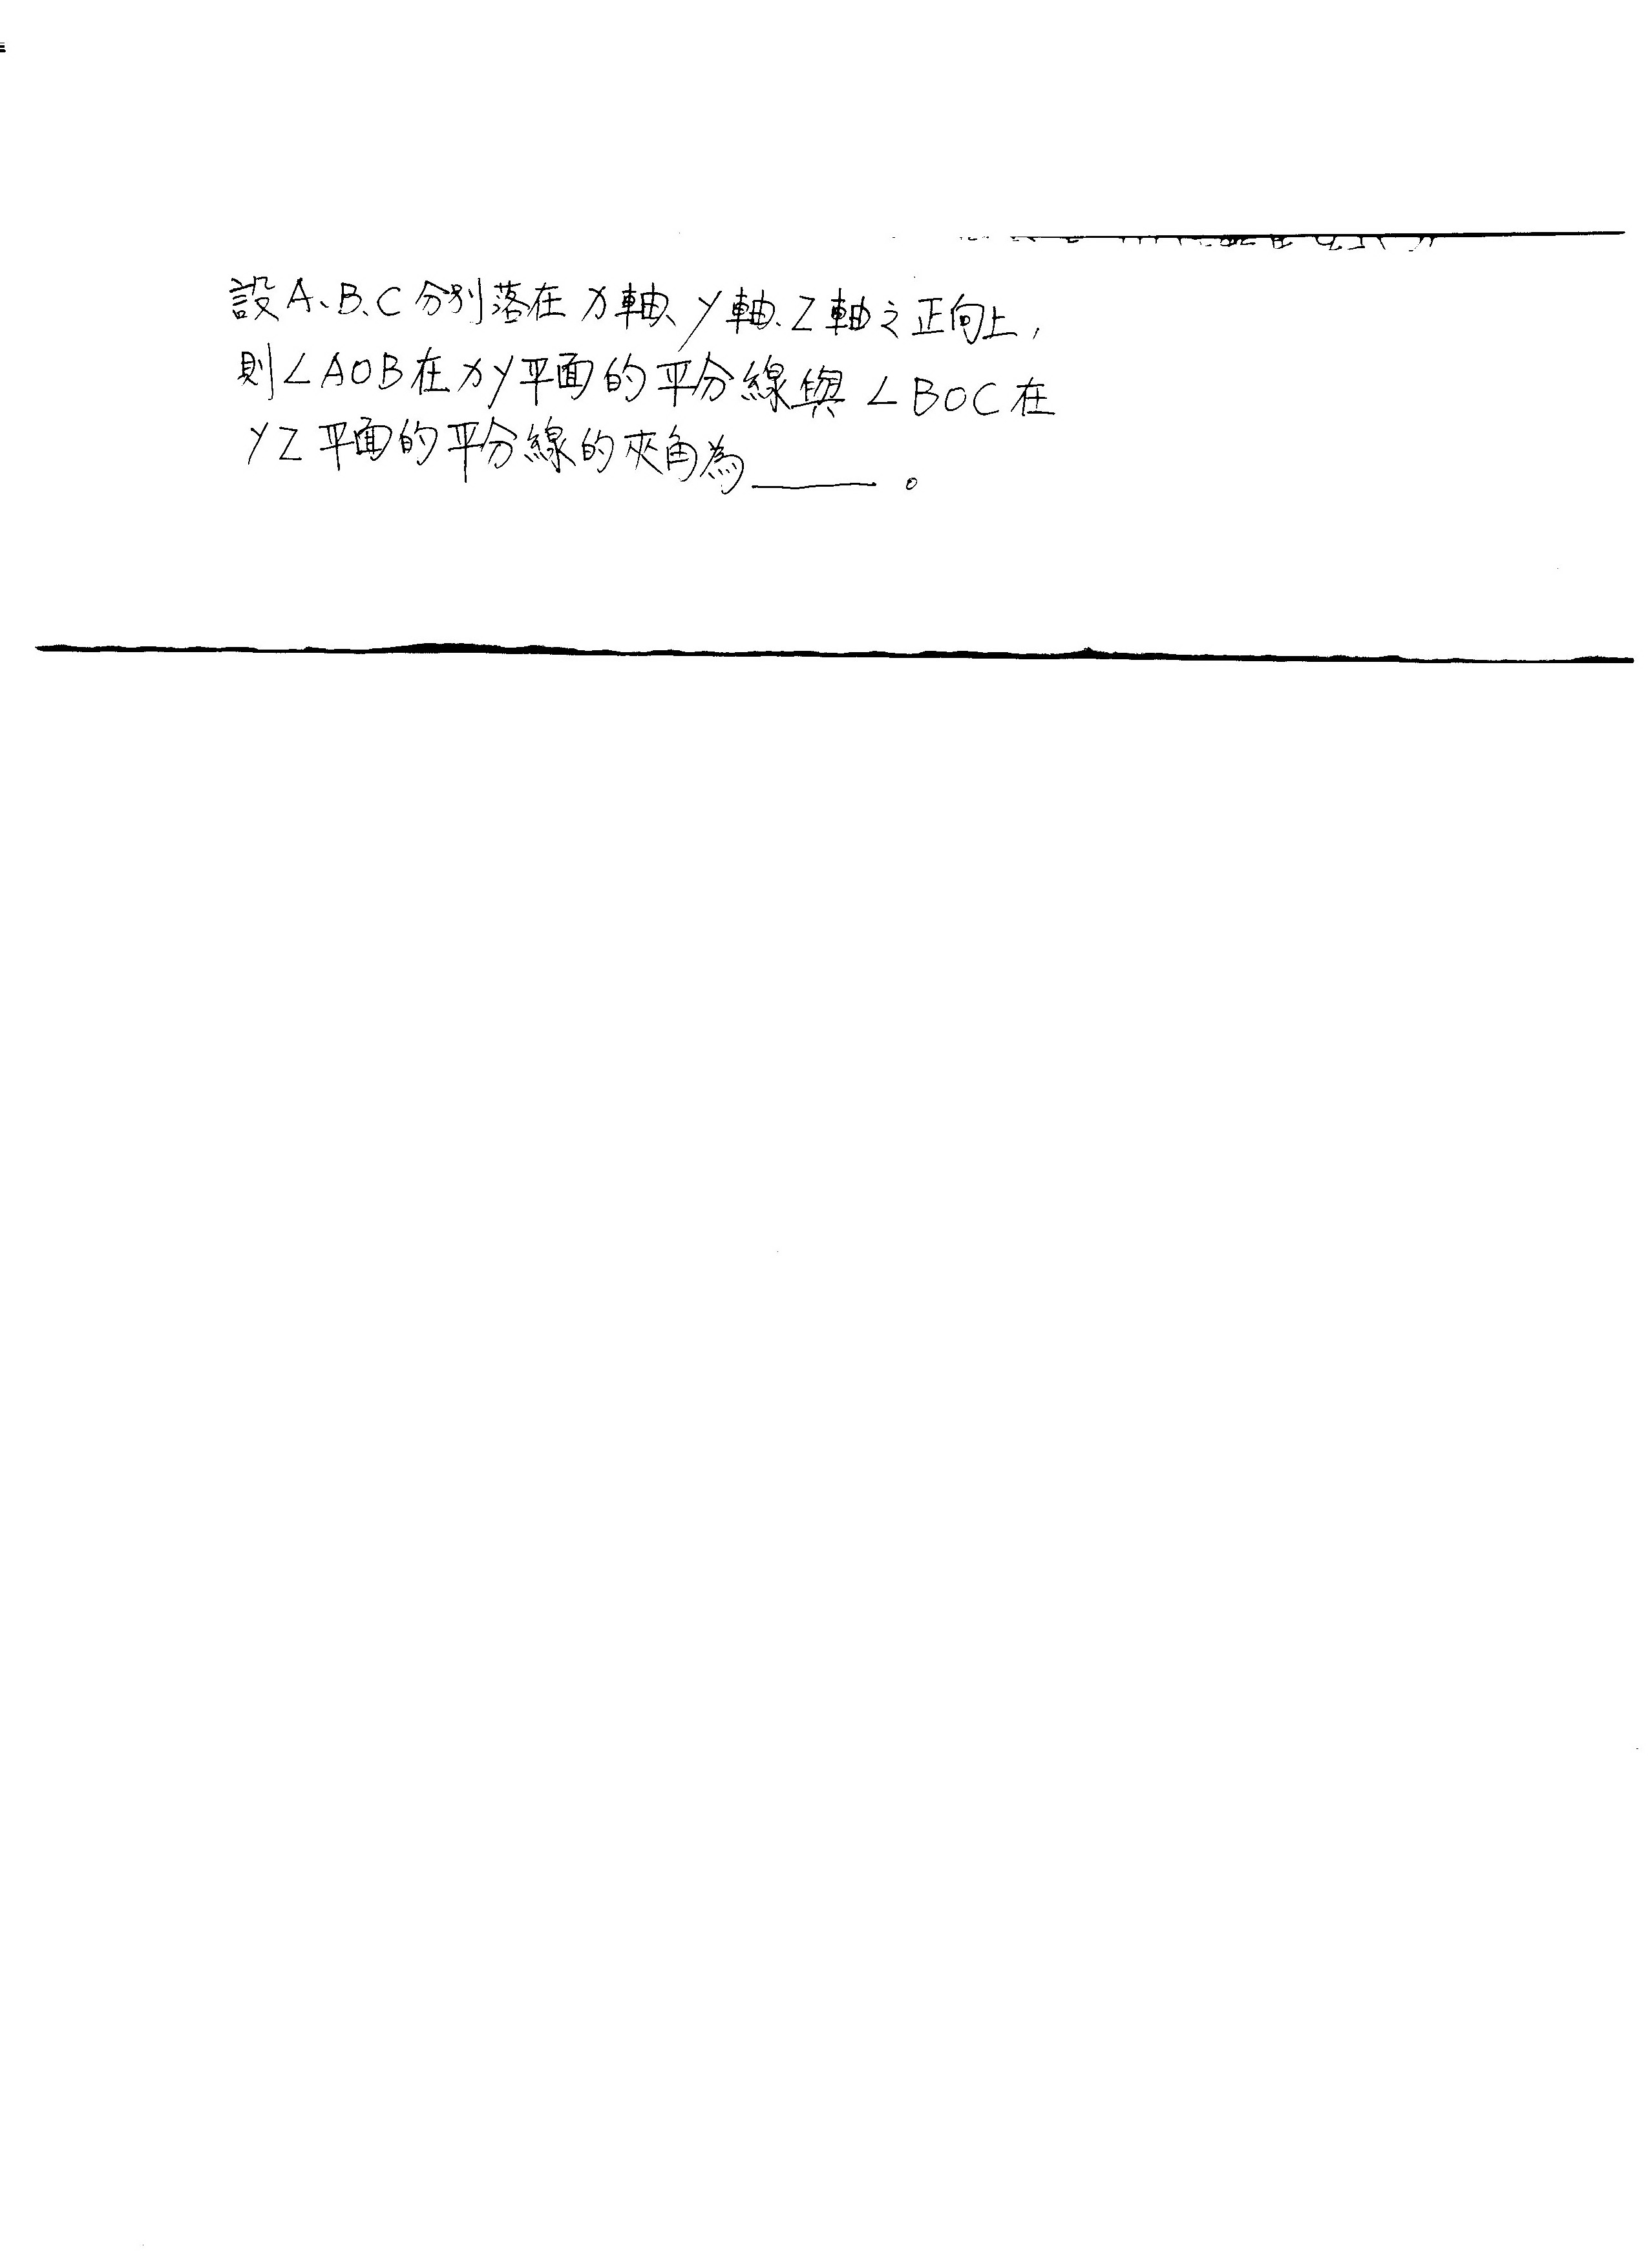 設A、B、C分別落在x軸、y軸、z軸之正向上,
則∠AOB在xy平面的平分線與∠BOC在
yz平面的平分線的夾角為____。